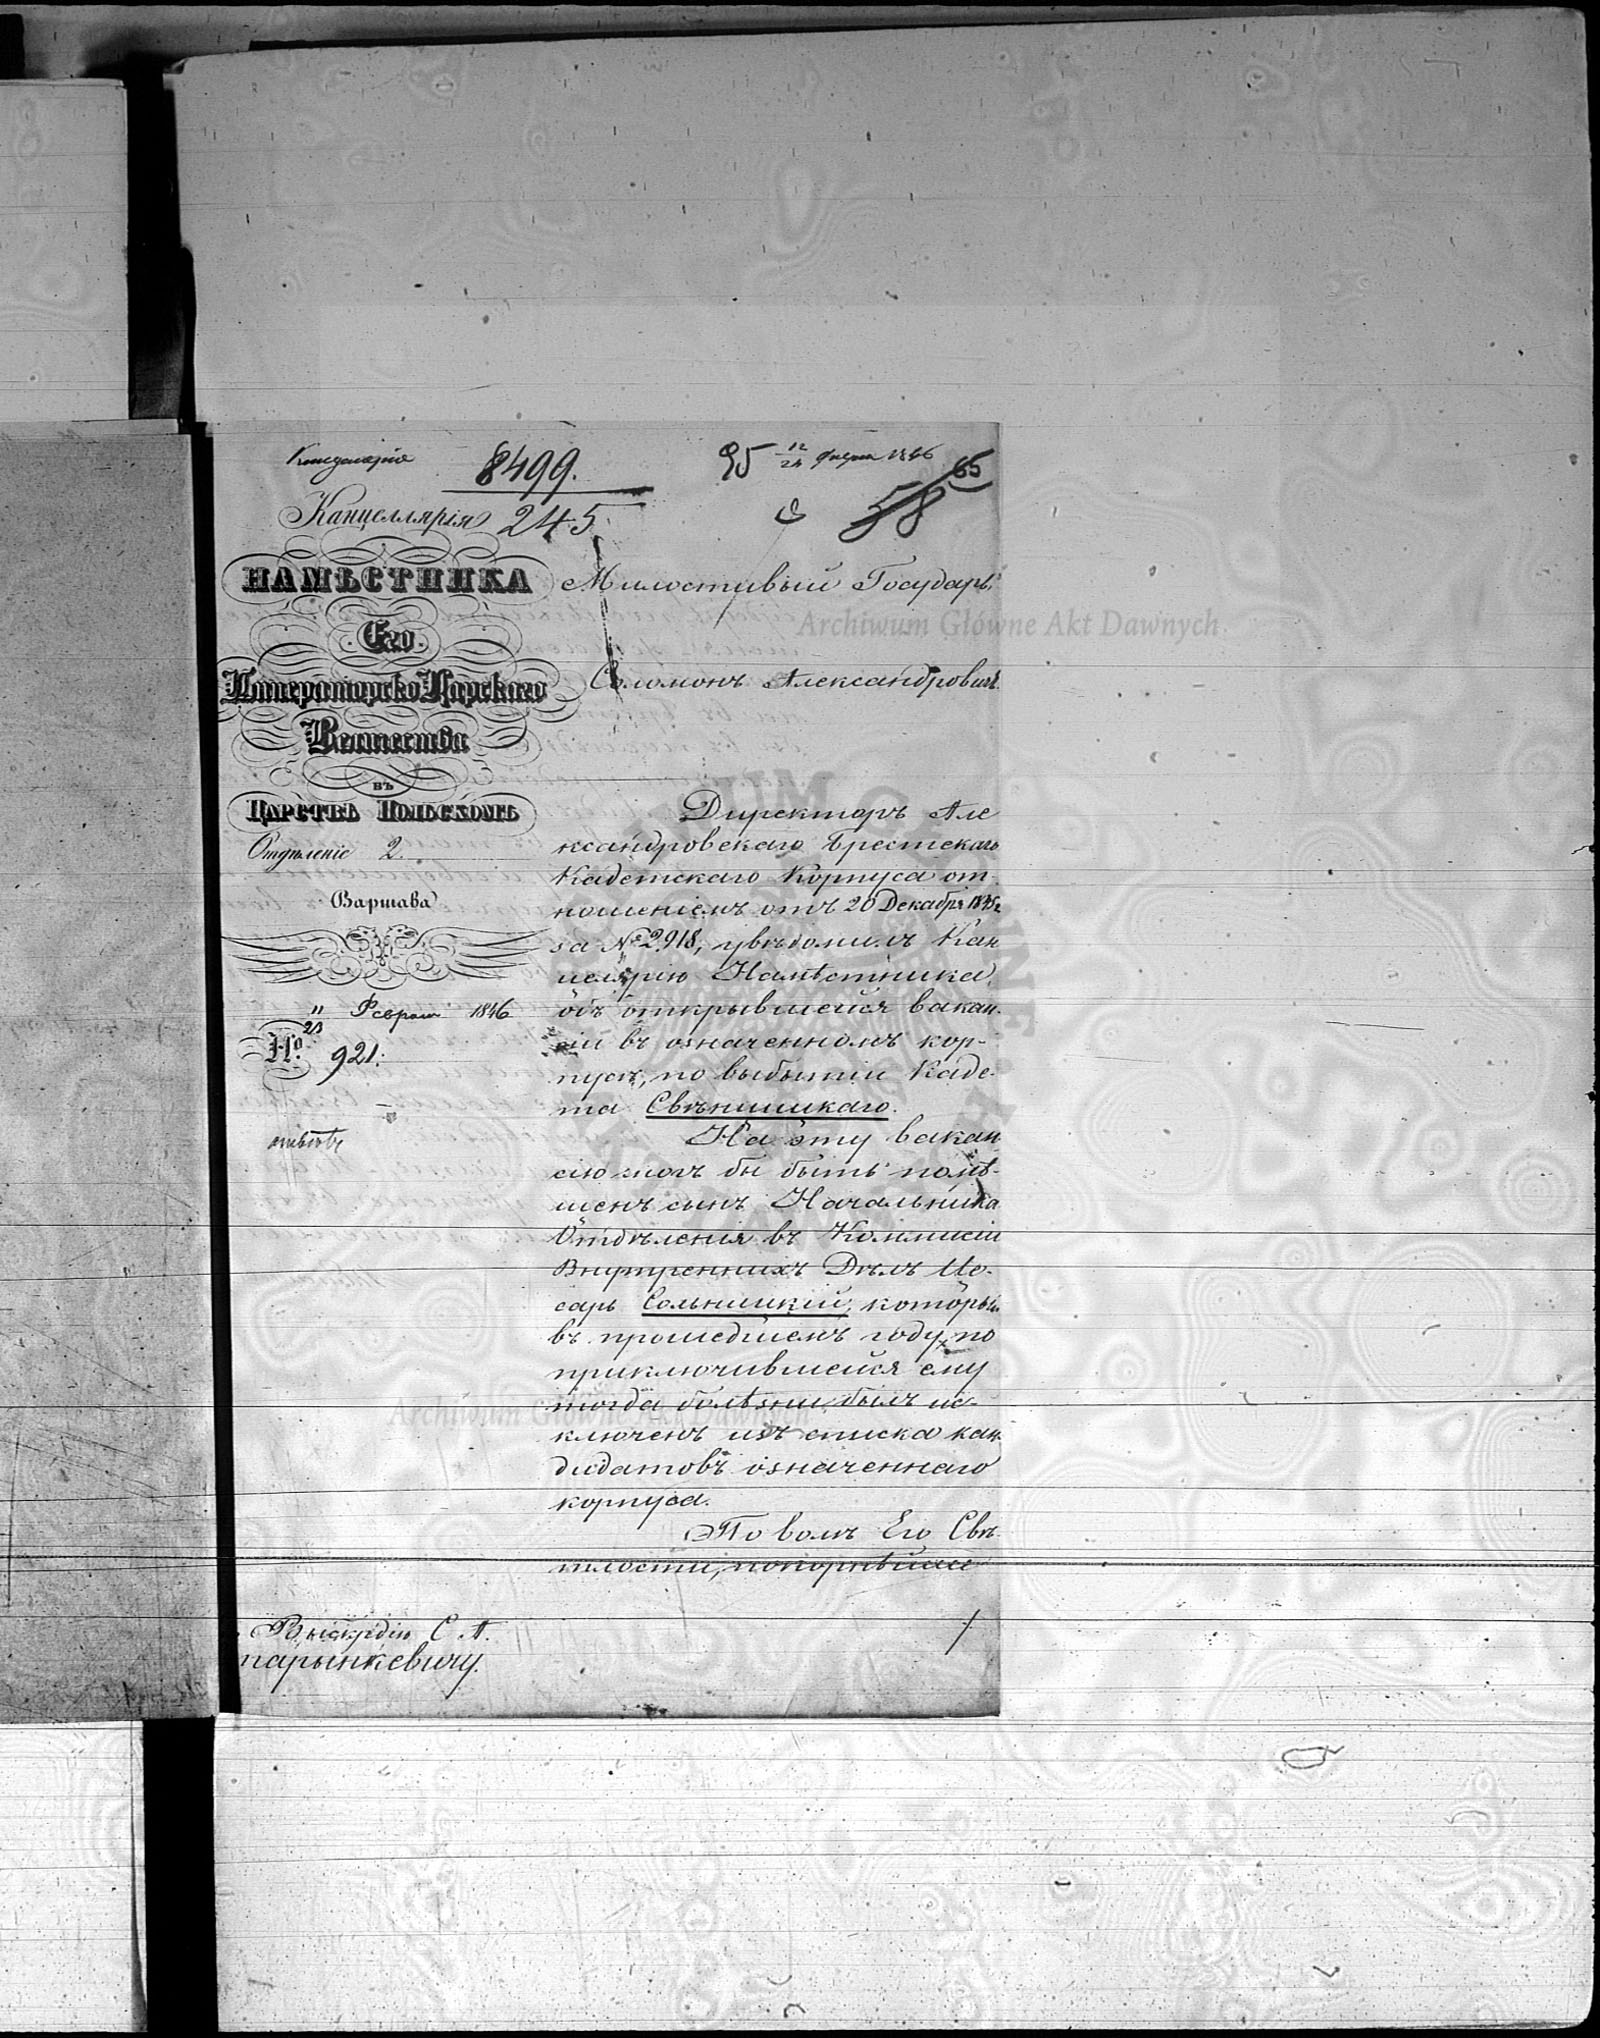 8499.
95 12/24 Февр. 1846
65
58
Канцеллярія 245
НАМѢСТНИКА
Его
Императорско Царскаго
Величества
въ
ЦАРСТВѢ ПОЛЬСКОМЪ
Отдѣленіе 2.
Варшава
11/23 Февраля 1846
№ 921.
Милостивый Государь,
Соломонъ Александровичъ.
Директоръ Але
ксандровскаго Брестскаго
Кадетскаго Корпуса от-
ношеніемъ отъ 20 Декабря 1845 г.
за № 2918, увѣдомилъ Кан
целярію Намѣстника,
объ открывшейся вакан-
сіи въ означенномъ кор-
пусѣ, по выбытіи Каде-
та Свѣнцицкаго.
На эту вакан
сію могъ бы быть помѣ-
щенъ сынъ Начальника
Отдѣленія въ Коммисіи
Внутреннихъ Дѣлъ Це-
сарь Сольницкій, который
въ прошедшемъ году, по
приключившейся ему
тогда болѣзни, былъ ис-
ключенъ изъ списка кан
дидатовъ означеннаго
корпуса.
По волѣ Его Свѣ-
тлости, покорнѣйше
С. А.
тарынкевичу.
Archiwum Główne Akt Dawnych
Archiwum Główne Akt Dawnych